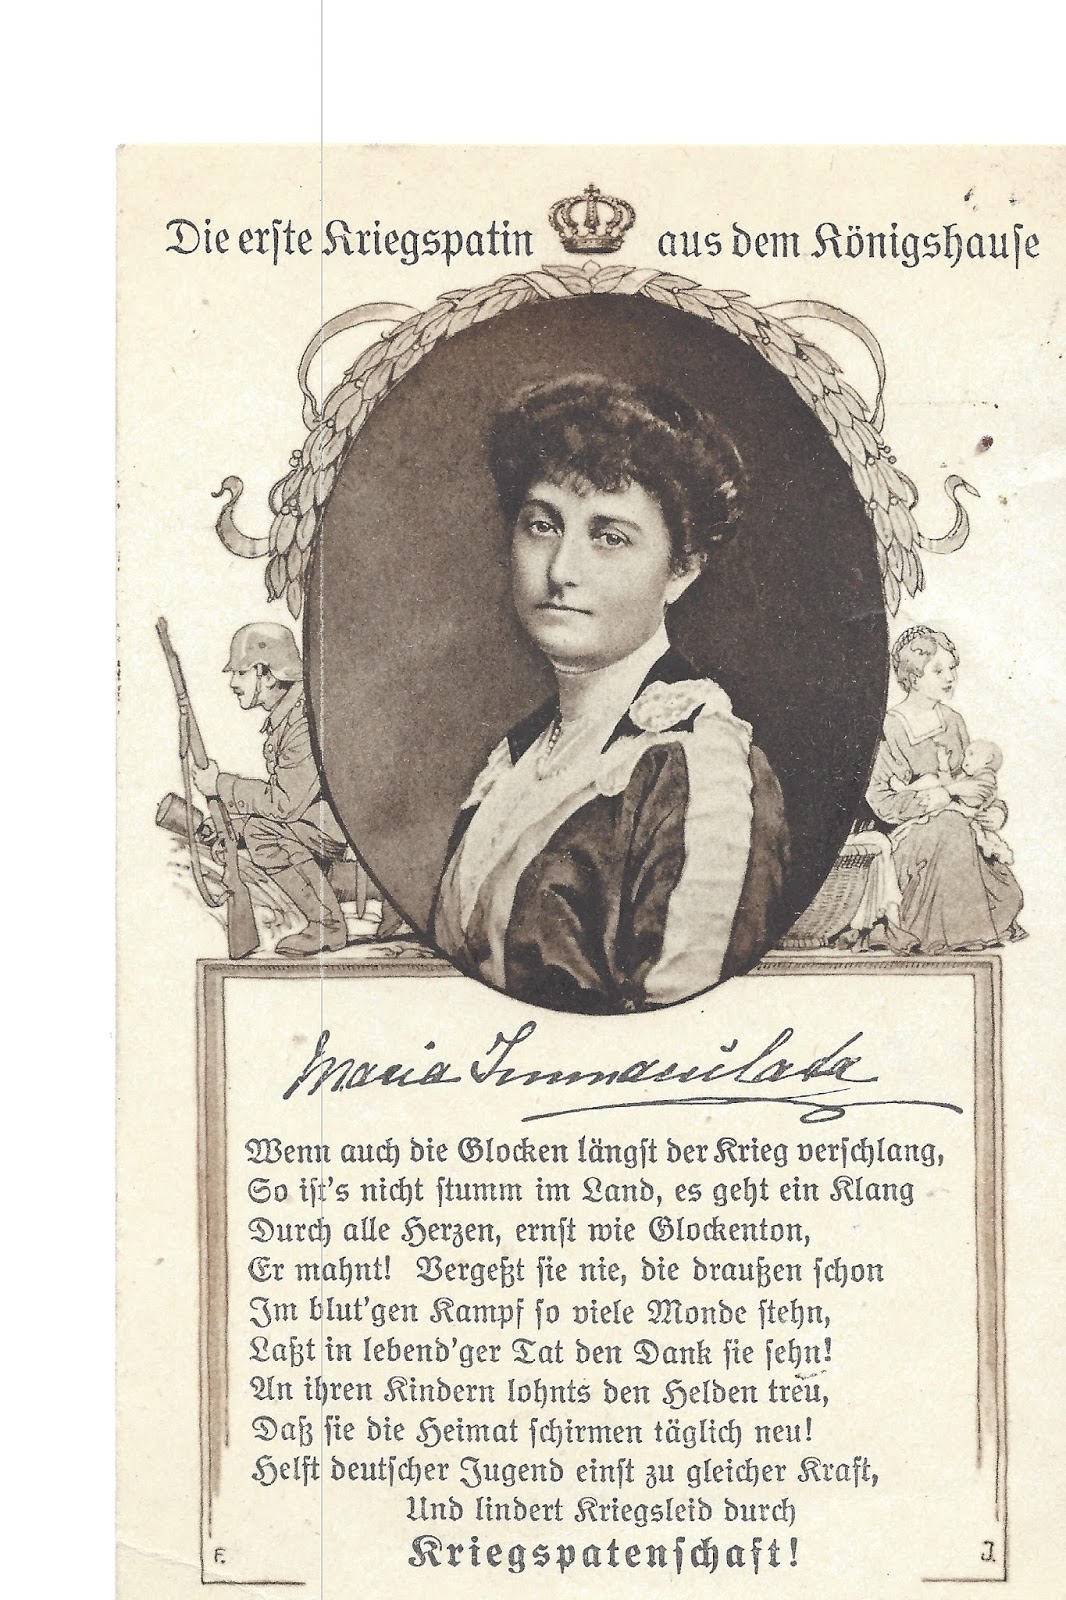 Die erste Kriegspatin aus dem Königshause
Maria Immaculata
Wenn auch die Glocken längst der Krieg verschlang,
So ist's nicht stumm im Land, es geht ein Klang
Durch alle Herzen, ernst wie Glockenton,
Er mahnt! Vergeßt sie nie, die draußen schon
Im blut'gen Kampf so viele Monde stehn,
Laßt in lebend'ger Tat den Dank sie sehn!
An ihren Kindern lohnts den Helden treu,
Daß sie die Heimat schirmen täglich neu!
Helft deutscher Jugend einst zu gleicher Kraft,
Und lindert Kriegsleid durch
Kriegspatenschaft!
F. J.